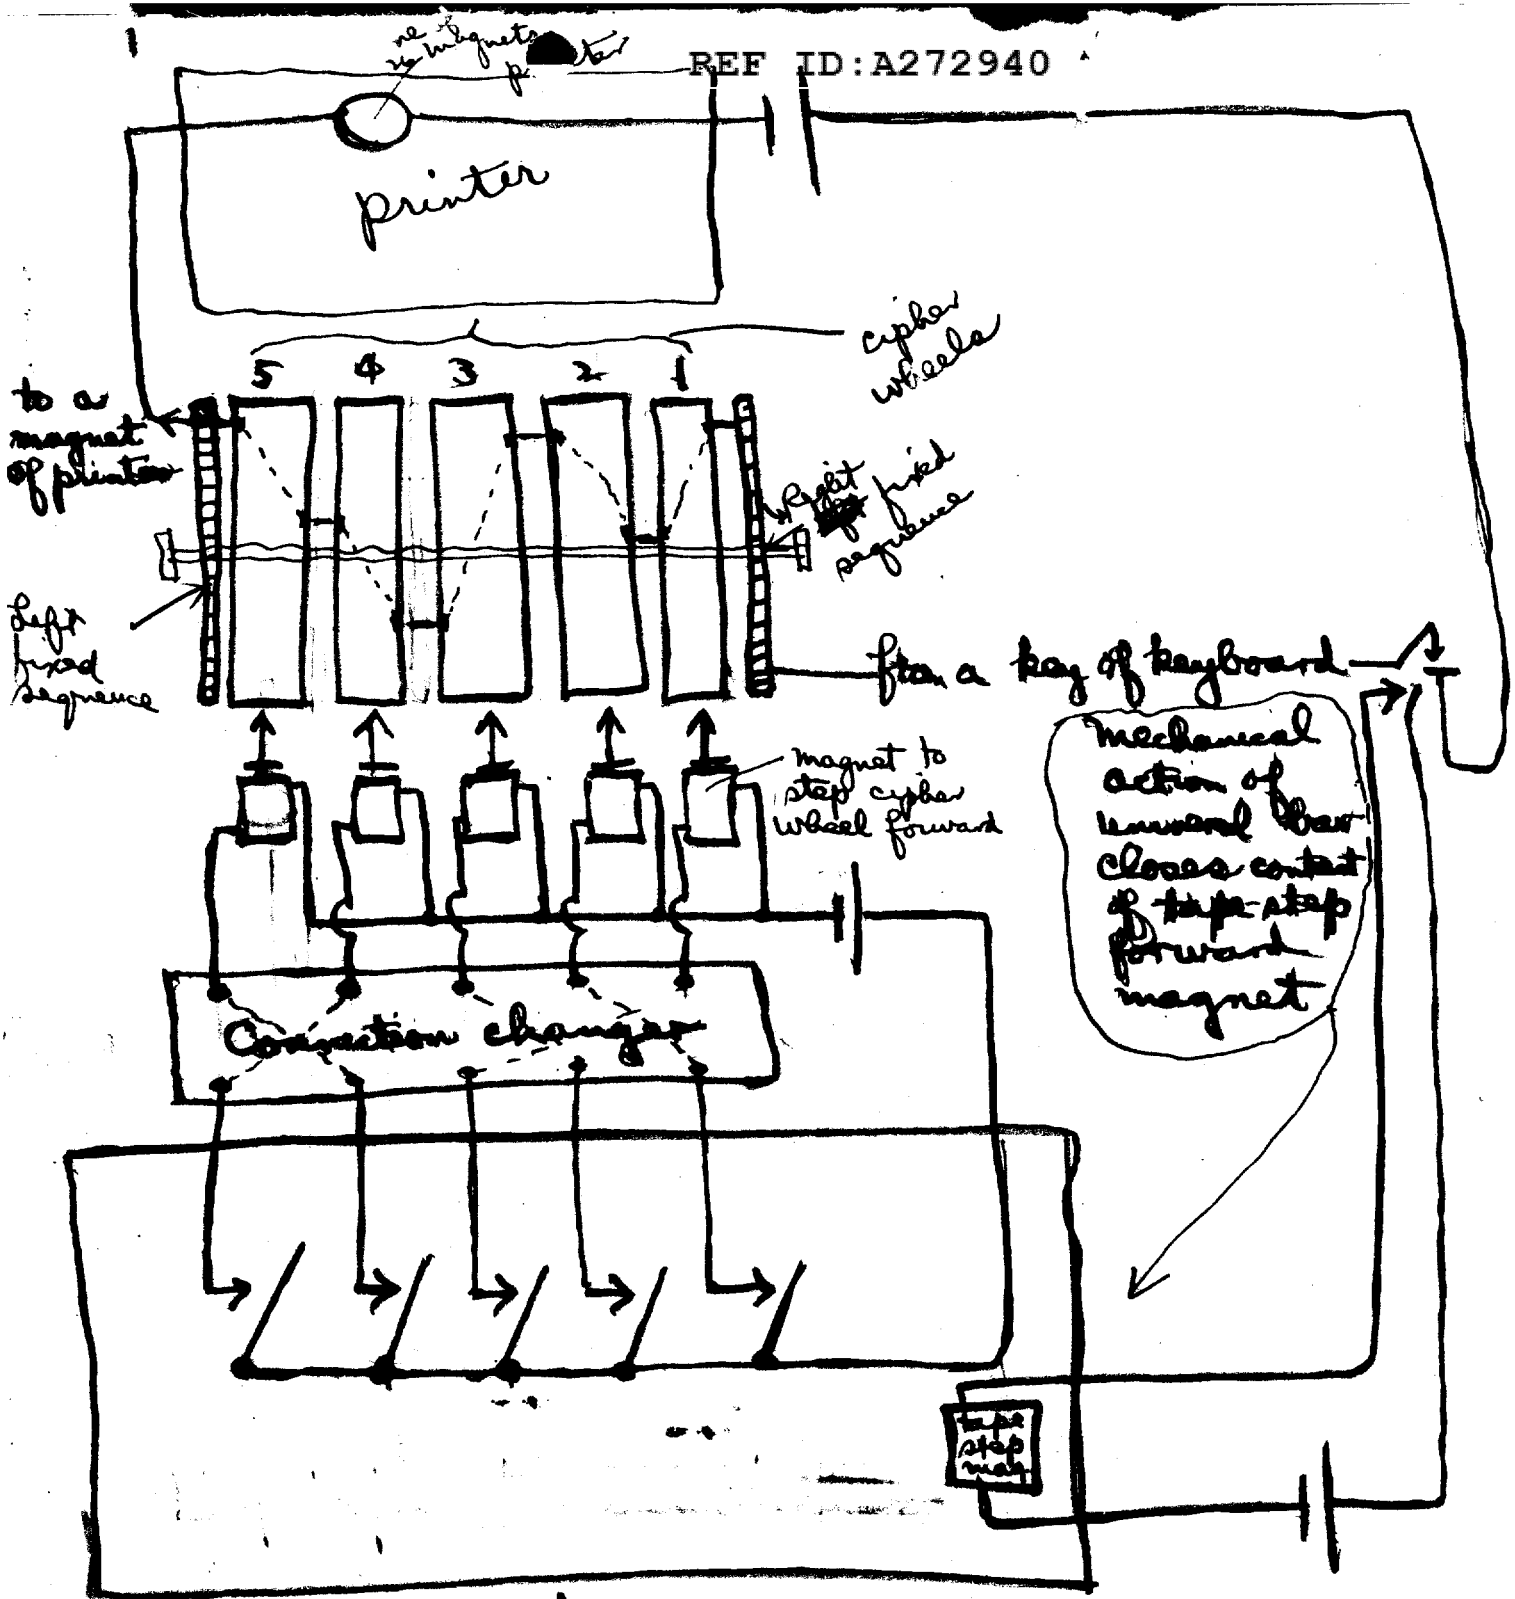 REF ID:A272940
magnets
printer
cipher
wheels
5 4 3 2 1
to a
magnet
of printer
Right
fixed
sequence
Left
fixed
sequence
from a key of keyboard
magnet to
step cipher
wheel forward
mechanical
action of
universal bar
closes contact
of tape-step
forward
magnet
Connection changer
tape
step
mag.